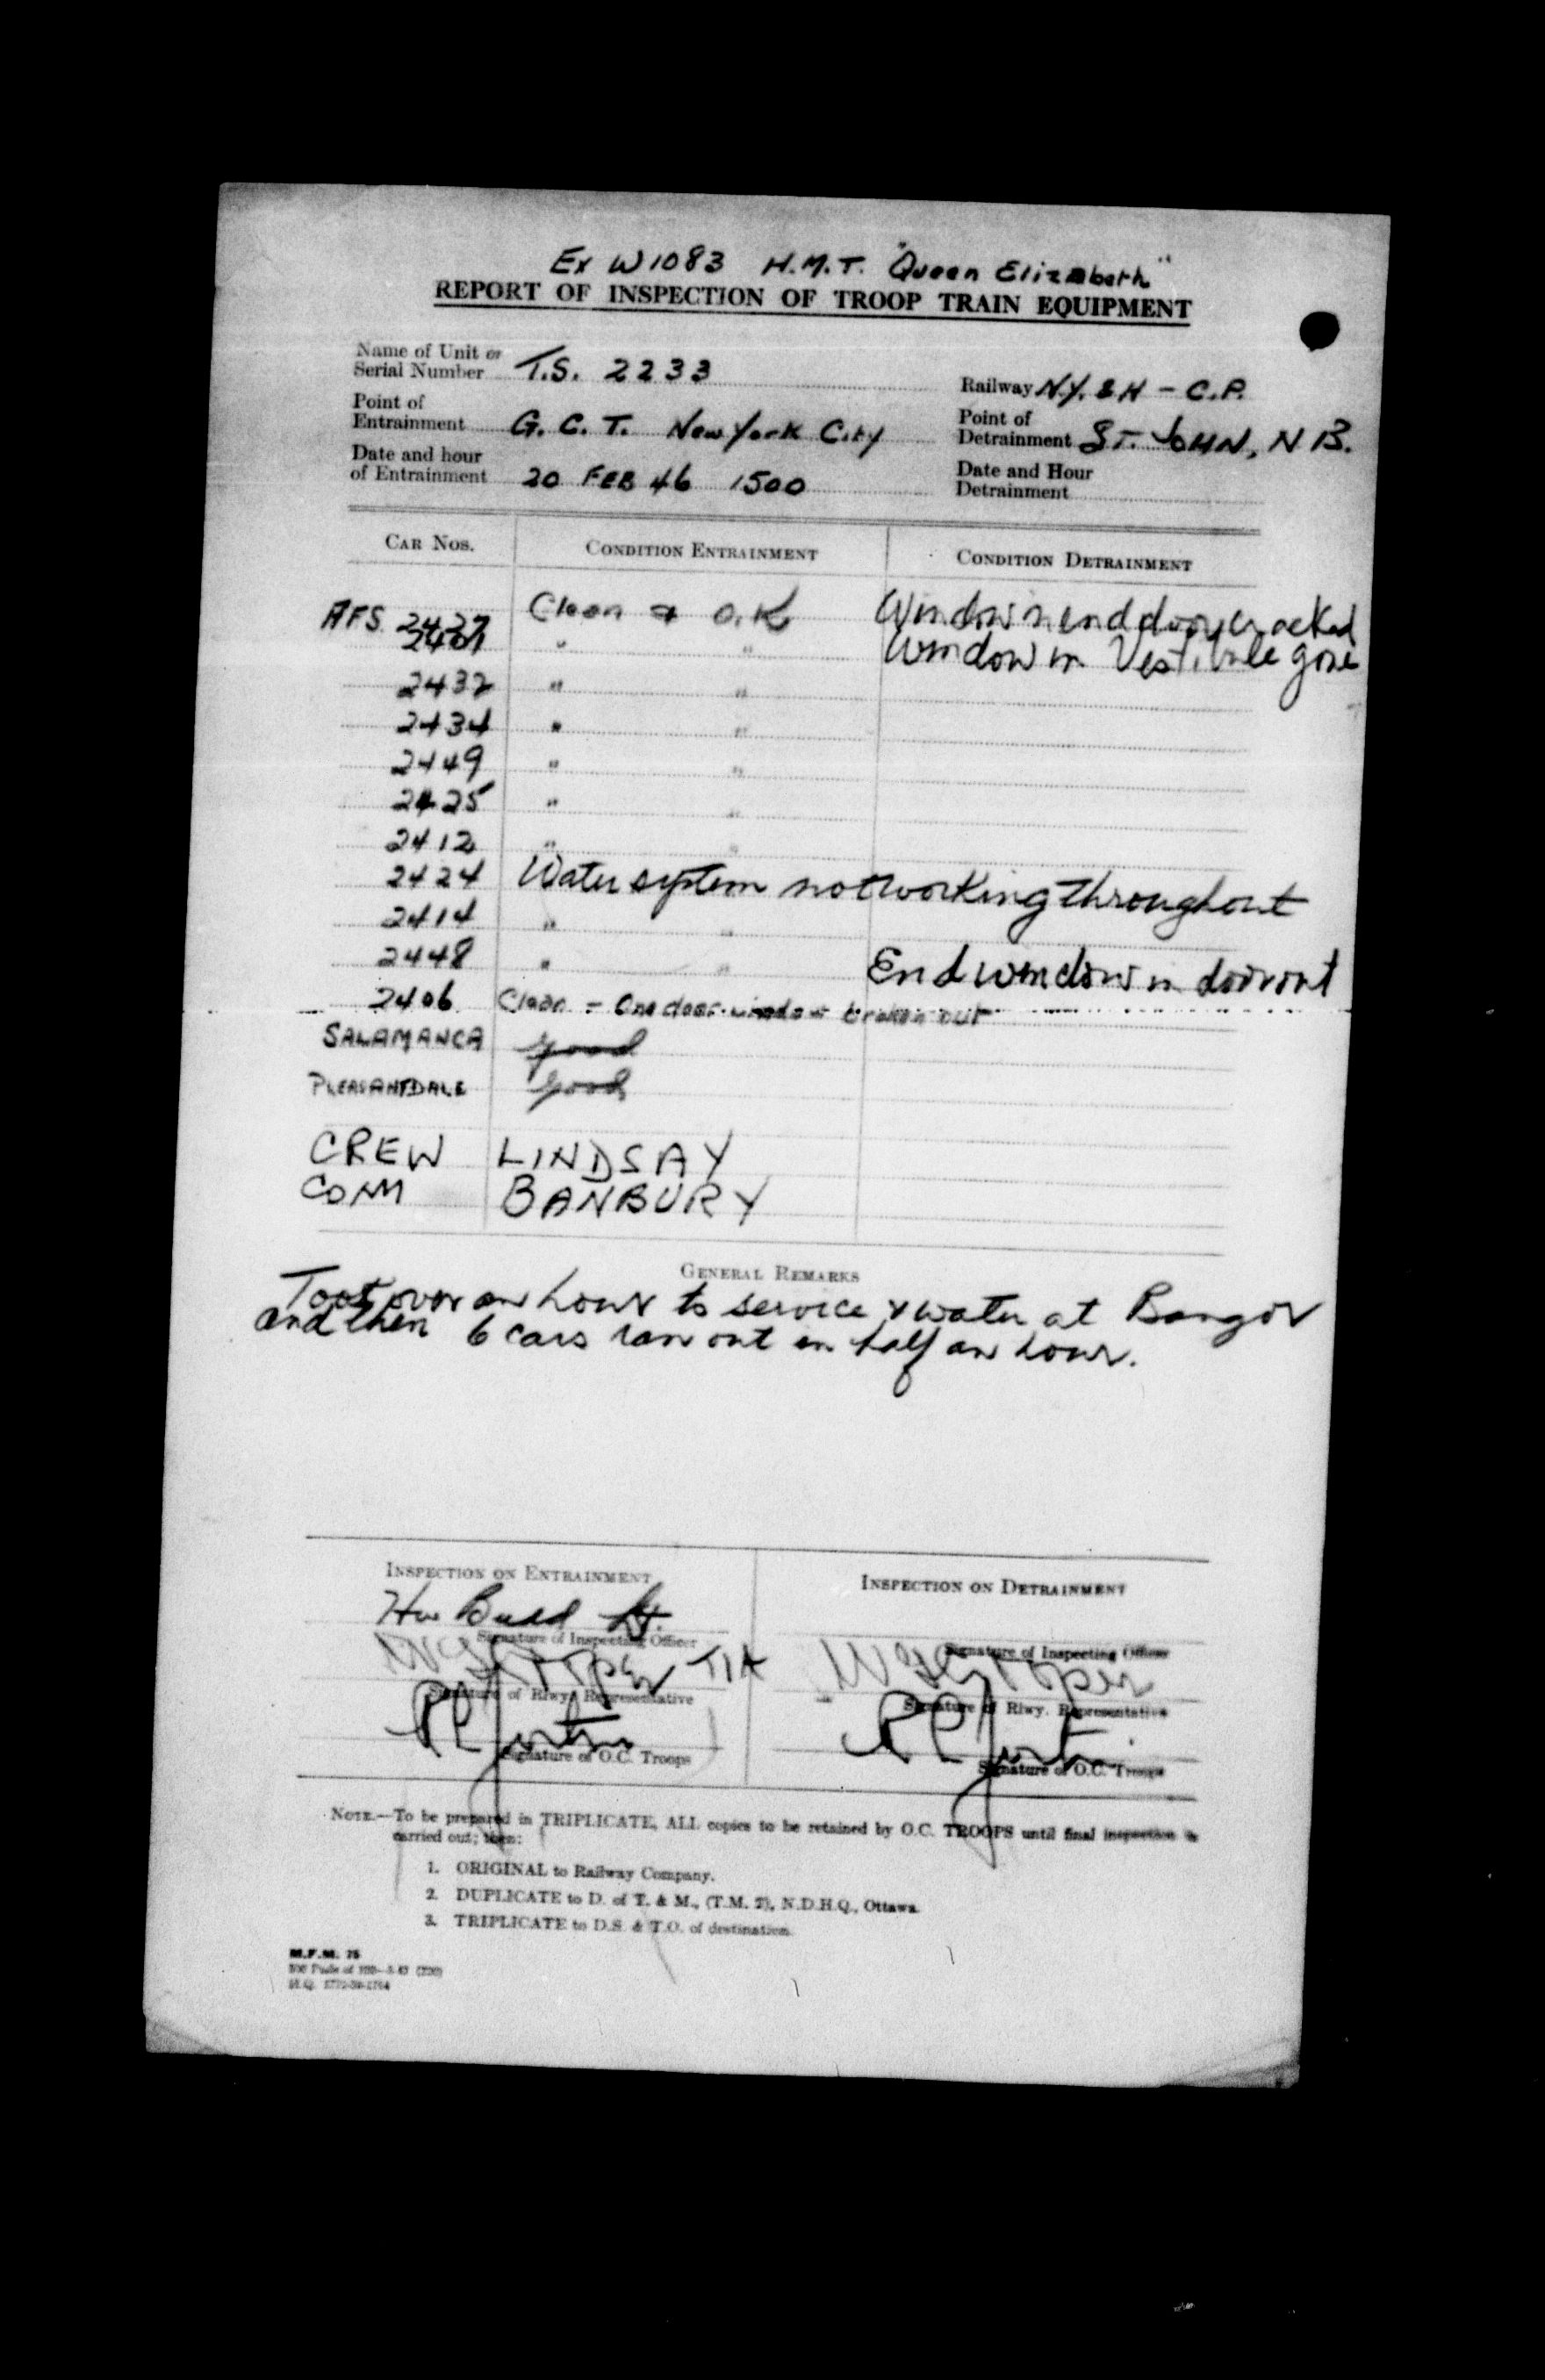 Ex W1083 H.M.T. "Queen Elizabeth"
REPORT OF INSPECTION OF TROOP TRAIN EQUIPMENT
Name of Unit or
Serial Number T.S. 2233
Railway N.Y. & H - C.P.
Point of
Entrainment G. C. T. New York City
Point of
Detrainment ST. JOHN, N B.
Date and hour
of Entrainment 20 FEB 46 1500
Date and Hour
Detrainment
CAR NOS. CONDITION ENTRAINMENT CONDITION DETRAINMENT
AFS 2427 Clean & O.K Window in end door cracked
2401 " " Window in Vestibule gone
2432 " "
2434 " "
2449 " "
2425 " "
2412 " "
2424 Water system not working throughout
2414 " "
2448 " " End window in door out
2406 Clean - One door window broken out
SALAMANCA good
PLEASANTDALE good
CREW LINDSAY
COMM BANBURY
GENERAL REMARKS
Took over an hour to service & water at Bangor
and then 6 cars ran out in half an hour.
INSPECTION ON ENTRAINMENT INSPECTION ON DETRAINMENT
Lt.
Signature of Inspecting Officer Signature of Inspecting Officer
Signature of Rlwy. Representative Signature of Rlwy. Representative
Signature of O.C. Troops Signature of O.C. Troops
NOTE.—To be prepared in TRIPLICATE, ALL copies to be retained by O.C. TROOPS until final inspection is
carried out; then:
1. ORIGINAL to Railway Company.
2. DUPLICATE to D. of T. & M., (T.M. 2), N.D.H.Q., Ottawa.
3. TRIPLICATE to D.S. & T.O. of destination.
M.F.M. 75